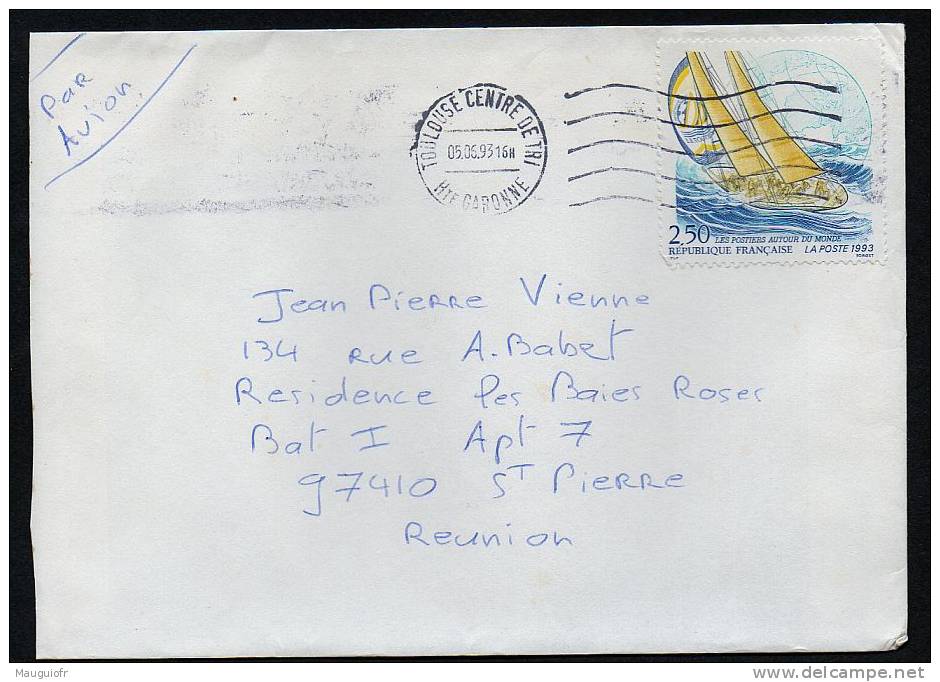 Par
Avion
TOULOUSE CENTRE DE TRI
05.06.93 16H
HTE GARONNE
2,50
LES POSTIERS AUTOUR DU MONDE
RÉPUBLIQUE FRANÇAISE LA POSTE 1993
FORGET
Jean Pierre Vienne
134 rue A. Babet
Residence les Baies Roses
Bat I Apt 7
97410 ST Pierre
Reunion
Mauguiofr
delcampe.net